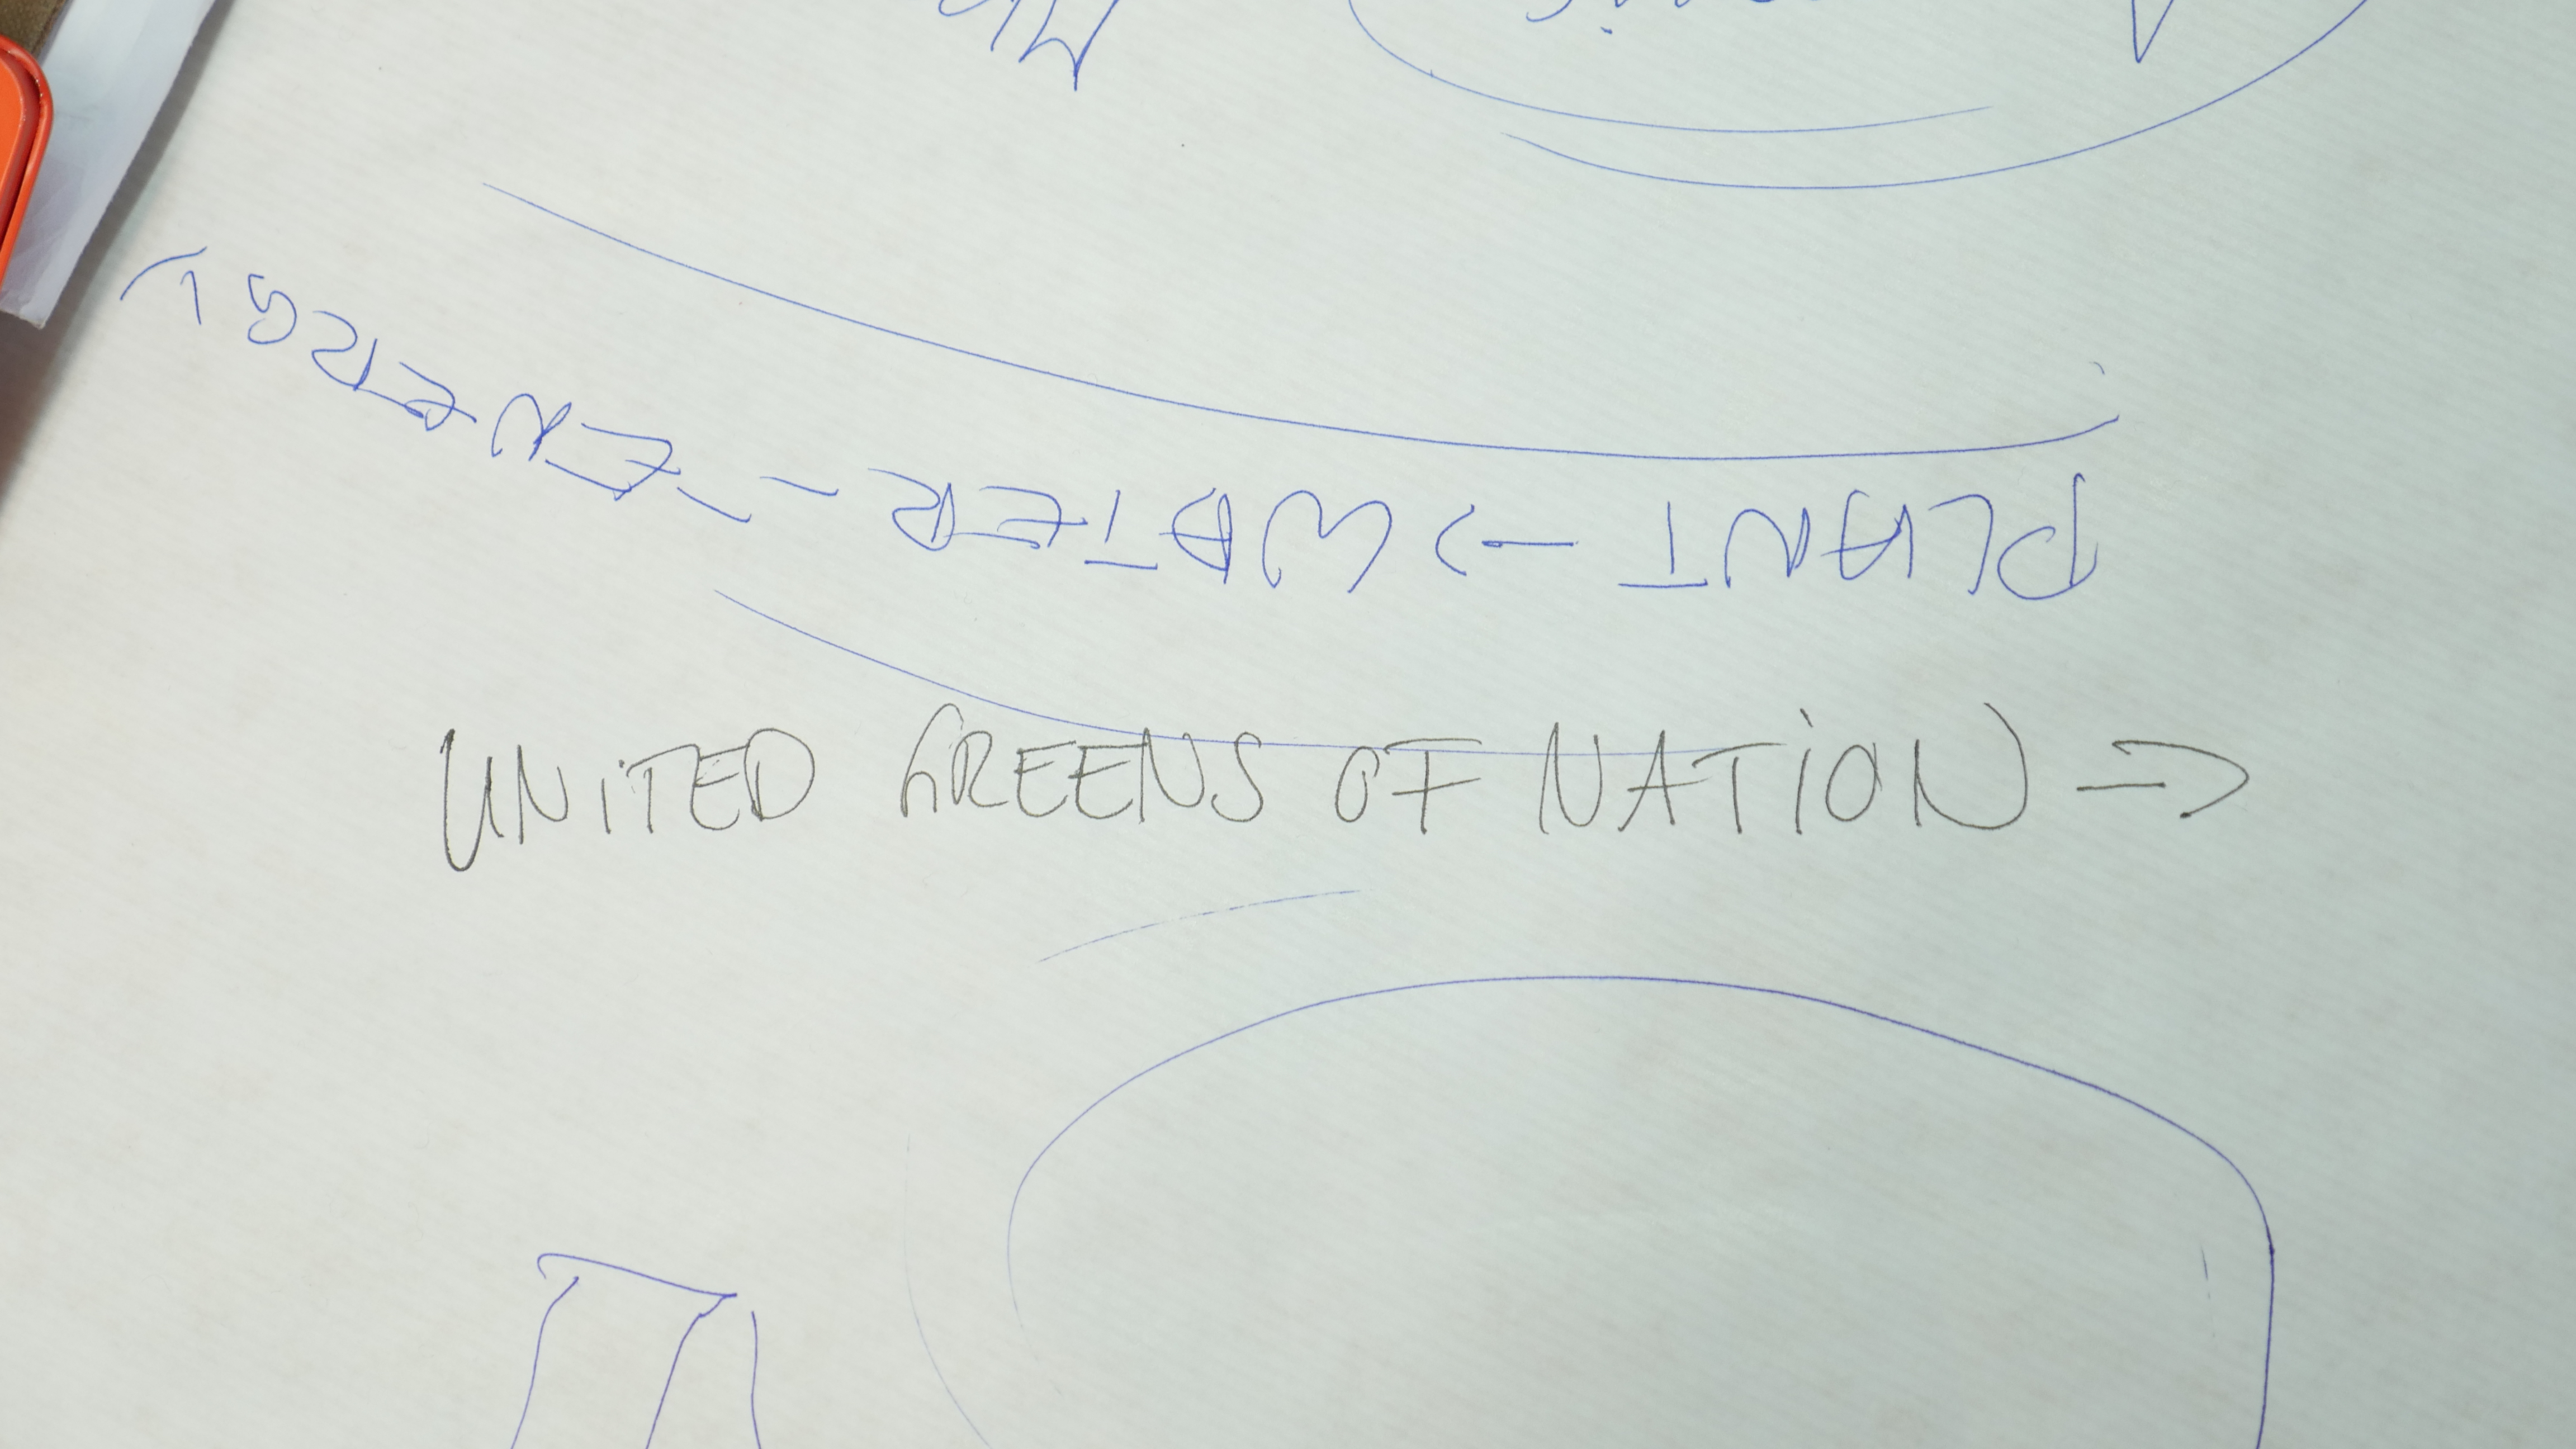 PLANT -> WATER -- ENERGY
UNITED GREENS OF NATION =>